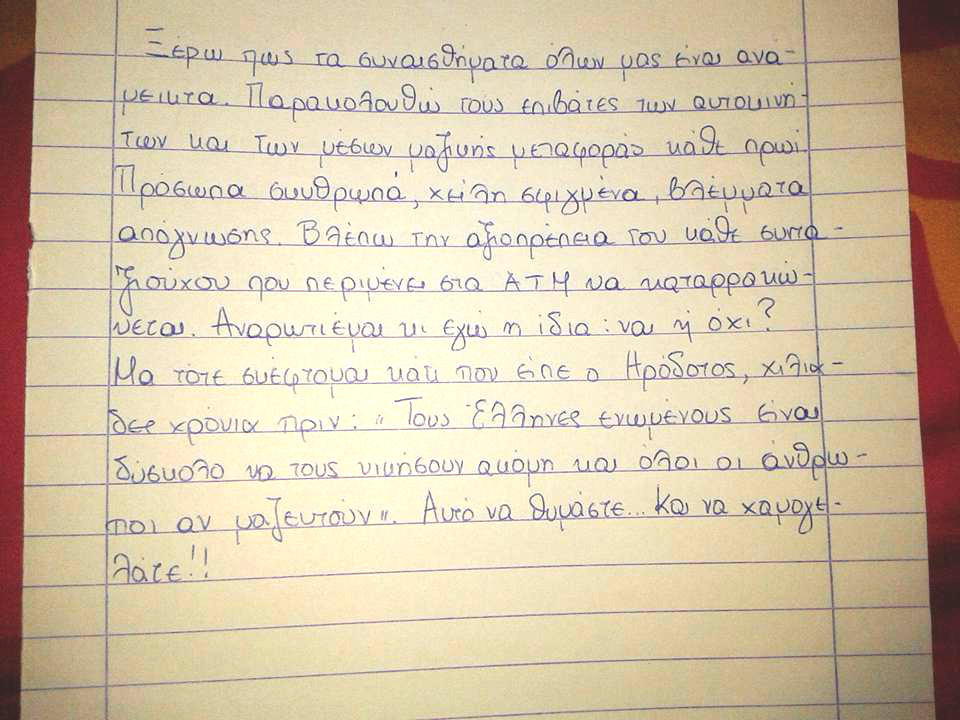 Ξέρω πως τα συναισθήματα όλων μας είναι ανά-
μεικτα. Παρακολουθώ τους επιβάτες των αυτοκινή-
των και των μέσων μαζικής μεταφοράς κάθε πρωί.
Πρόσωπα σκυθρωπά, χείλη σφιγμένα, βλέμματα
απόγνωσης. Βλέπω την αξιοπρέπεια του κάθε συντα-
ξιούχου που περιμένει στα ΑΤΜ να καταρρακώ-
νεται. Αναρωτιέμαι κι εγώ η ίδια : ναι ή όχι?
Μα τότε σκέφτομαι κάτι που είπε ο Ηρόδοτος, χιλιά-
δες χρόνια πριν : « Τους Έλληνες ενωμένους είναι
δύσκολο να τους νικήσουν ακόμη και όλοι οι άνθρω-
ποι αν μαζευτούν ». Αυτό να θυμάστε... Και να χαμογε-
λάτε!!